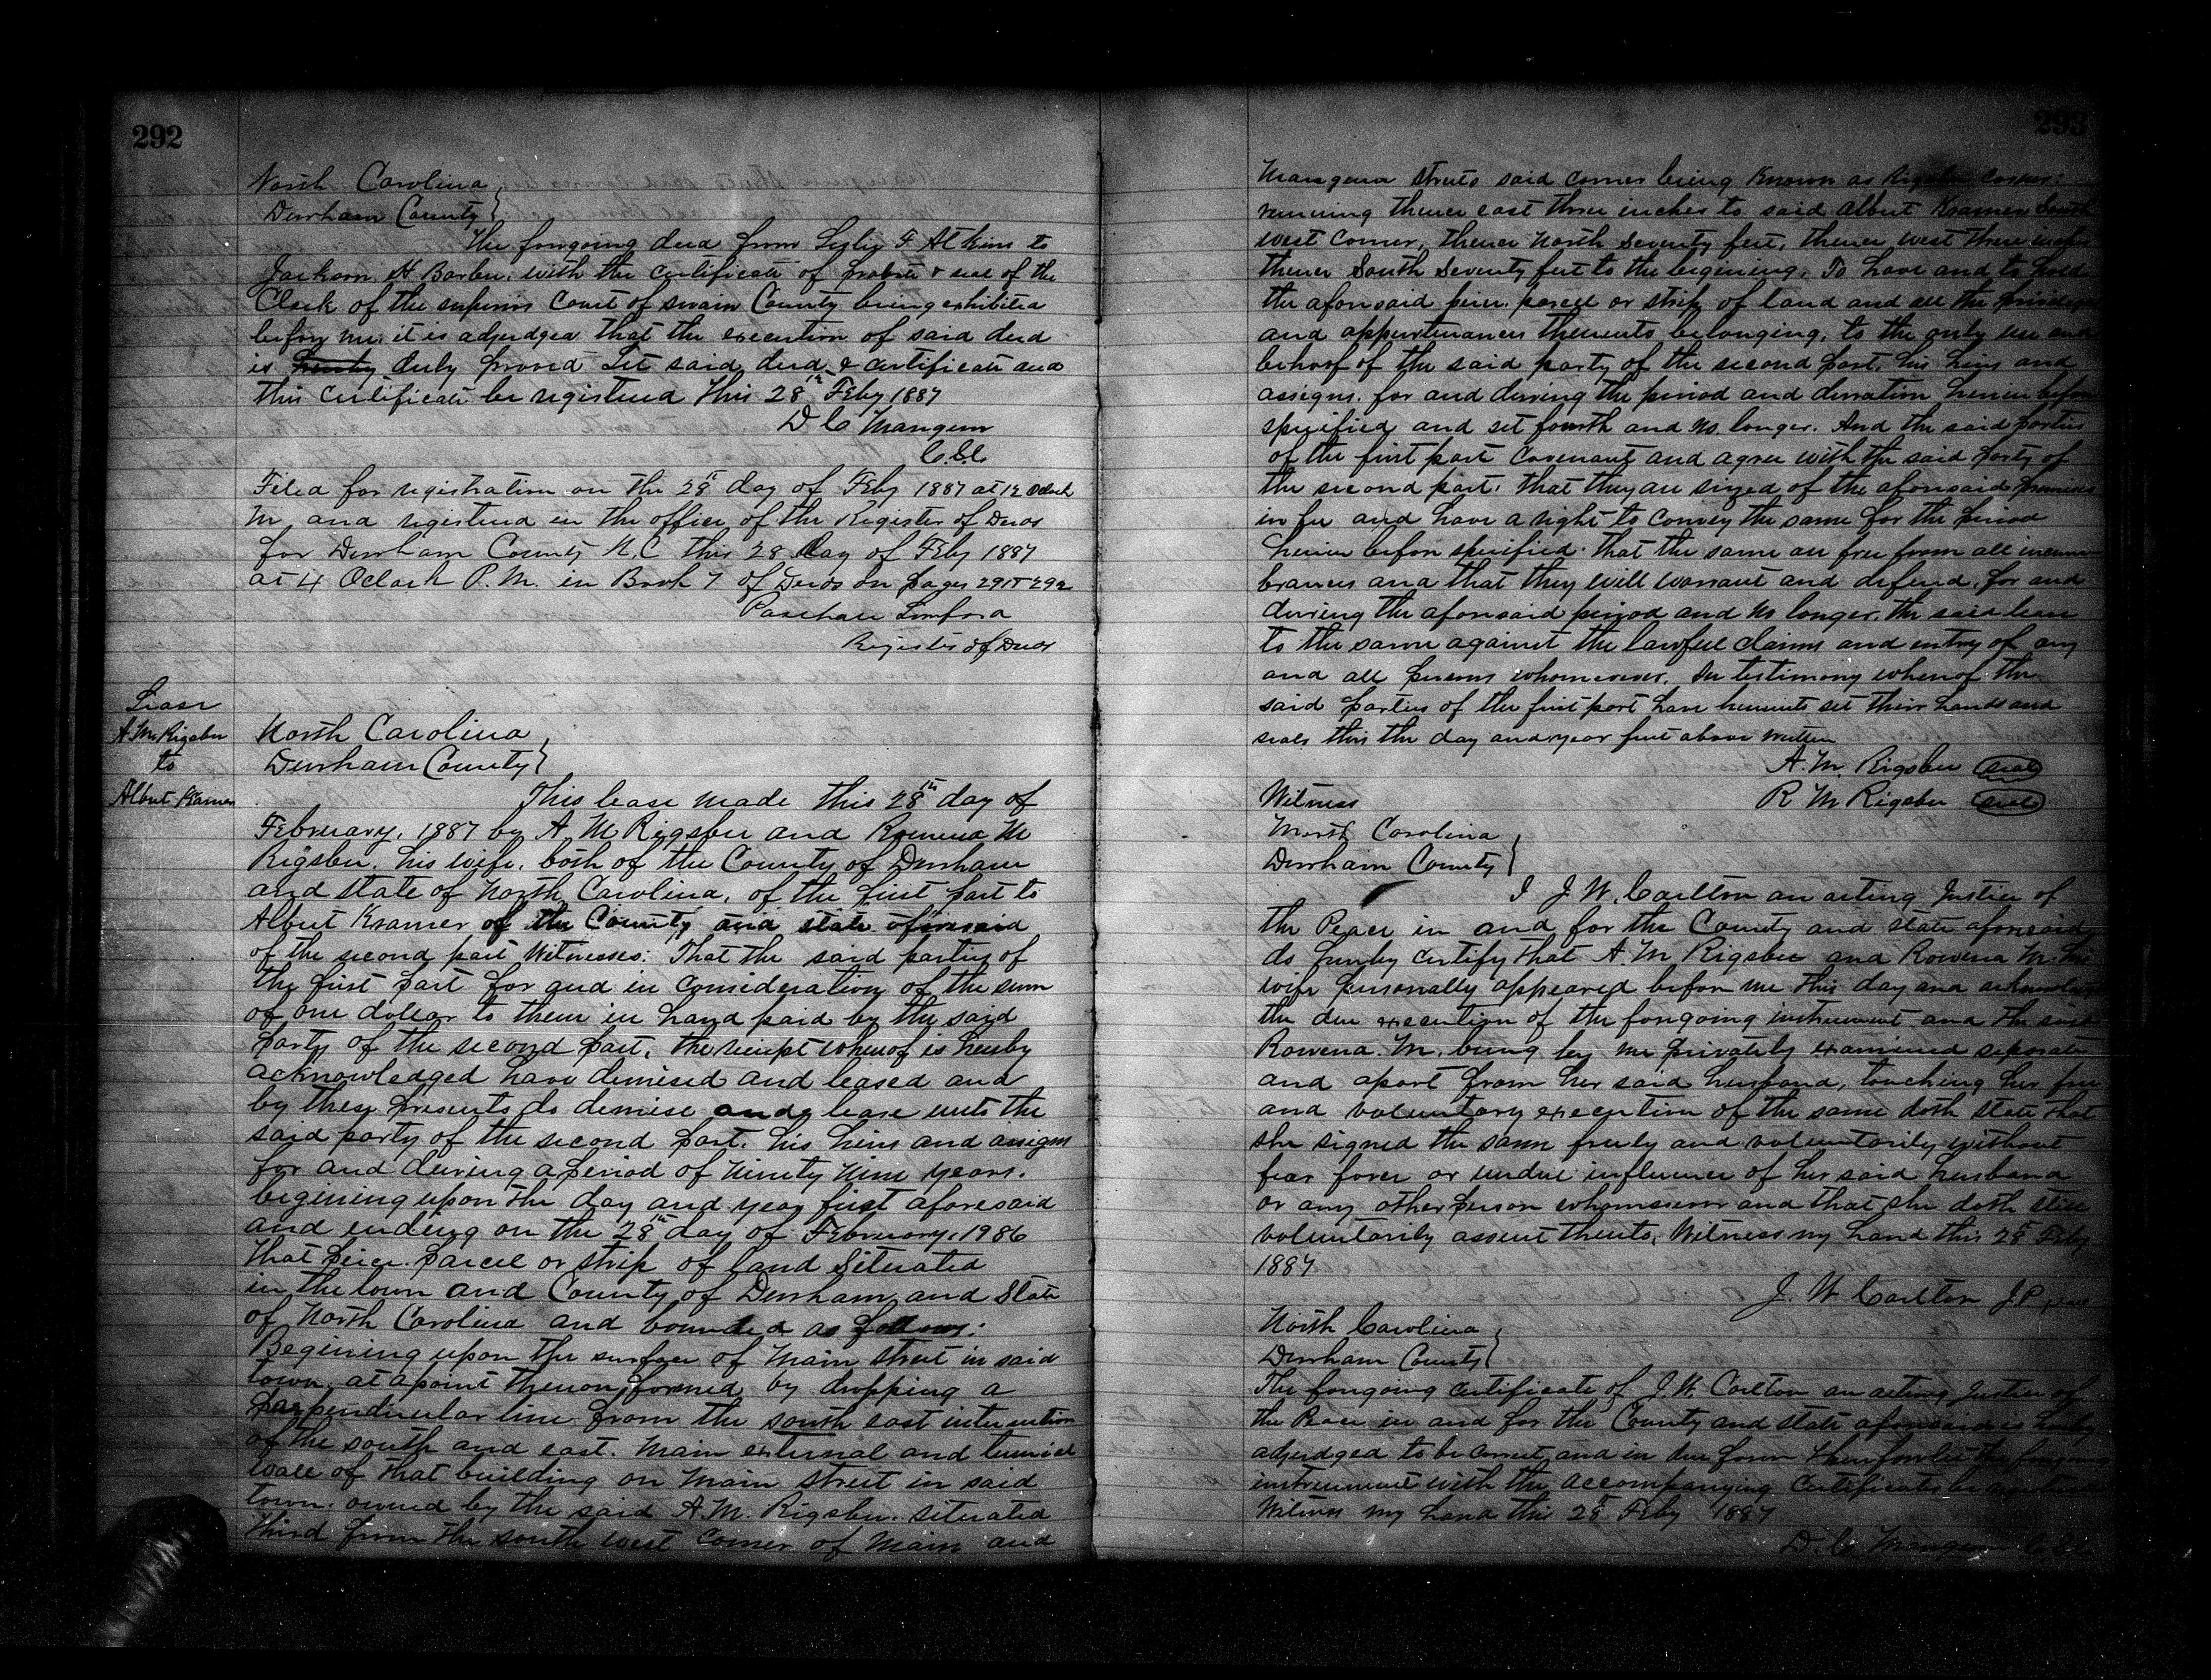 292
North Carolina
Durham County }
The foregoing deed from Leslie F. Atkins to
Jackson H Barbee, with the certificate of probate & seal of the
Clerk of the superior Court of swain County being exhibited
before me, it is adjudged that the execution of said deed
is hereby duly proved Let said deed & certificate and
this certificate be registered This 28th Feby 1887
D C Mangum
C.S.C
Filed for registration on the 28 day of Feby 1887 at 12 Oclock
M, and registered in the office of the Register of Deeds
for Durham County N.C this 28 day of Feby 1887
at 4 Oclock P.M. in Book 7 of Deeds on pages 291 & 292
Paschall Lunsford
Register of Deeds
Lease
A M Rigsbee
to
Albert Kramer
North Carolina
Durham County }
This lease made this 28th day of
February, 1887 by A M Rigsbee and Rowena M
Rigsbee, his wife, both of the County of Durham
and state of North Carolina, of the first part to
Albert Kramer of the County and state aforesaid
of the second part Witnesses: That the said parties of
the first part for and in consideration of the sum
of one dollar to them in hand paid by the said
party of the second part, the receipt whereof is hereby
acknowledged have demised and leased and
by these presents do demise and lease unto the
said party of the second part, his heirs and assigns
for and during a period of ninety nine years,
begining upon the day and year first aforesaid
and ending on the 28th day of February, 1986
that peice parcel or strip of land Situated
in the town and County of Durham and State
of North Carolina and bounded as follows:
Begining upon the surface of Main street in said
town, at a point thereon, formed by dropping a
perpendicular line from the south east intersection
of the south and east. Main external and
wall of that building on Main street in said
town, owned by the said A.M. Rigsbee, situated
third from the south west corner of Main and
293
Mangum streets said corner being Known as Rigsbee corner;
running thence east three inches to said Albert Kramer South
west corner, thence North Seventy feet, thence west three inches
thence South Seventy feet to the begining, To have and to hold
the aforesaid peice, parcel or strip of land and all the privileges
and appurtenances thereunto belonging, to the only use and
behoof of the said party of the second part, his heirs and
assigns, for and during the period and duration herein before
specified and set fourth and no longer. And the said parties
of the first part Covenant and agree with the said party of
the second part, that they are seized of the aforesaid premises
in fee and have a right to convey the same for the period
herein before specified: that the same are free from all incum-
brances and that they will warrant and defend, for and
during the aforesaid period and no longer, the said lease
to the same against the lawful claims and entry of any
and all persons whomsoever. In testimony whereof the
said parties of the first part have hereunto set their hands and
seals this the day and year first above written
A. M. Rigsbee (seal)
Witness R M Rigsbee (seal)
North Carolina
Durham County }
I J. W. Carlton an acting Justice of
the Peace in and for the County and state aforesaid
do hereby certify that A. M Rigsbee and Rowena M. his
wife personally appeared before me this day and acknowledged
the due execution of the foregoing instrument and the said
Rowena. M. being by me privately examined separate
and apart from her said husband, touching her free
and voluntary execution of the same doth state that
she signed the same freely and voluntarily without
fear force or undue influence of her said husband
or any other person whomsoever and that she doth still
voluntarily assent thereto, Witness my hand this 28 Feby
1887
J. W Carlton J.P. (seal)
North Carolina
Durham County }
The foregoing certificate of J. W. Carlton an acting Justice of
the Peace in and for the County and state aforesaid is hereby
adjudged to be correct and in due form Therefore let the foregoing
instrument with the accompanying Certificates be registered
Witness my hand this 28 Feby 1887
D. C. Mangum